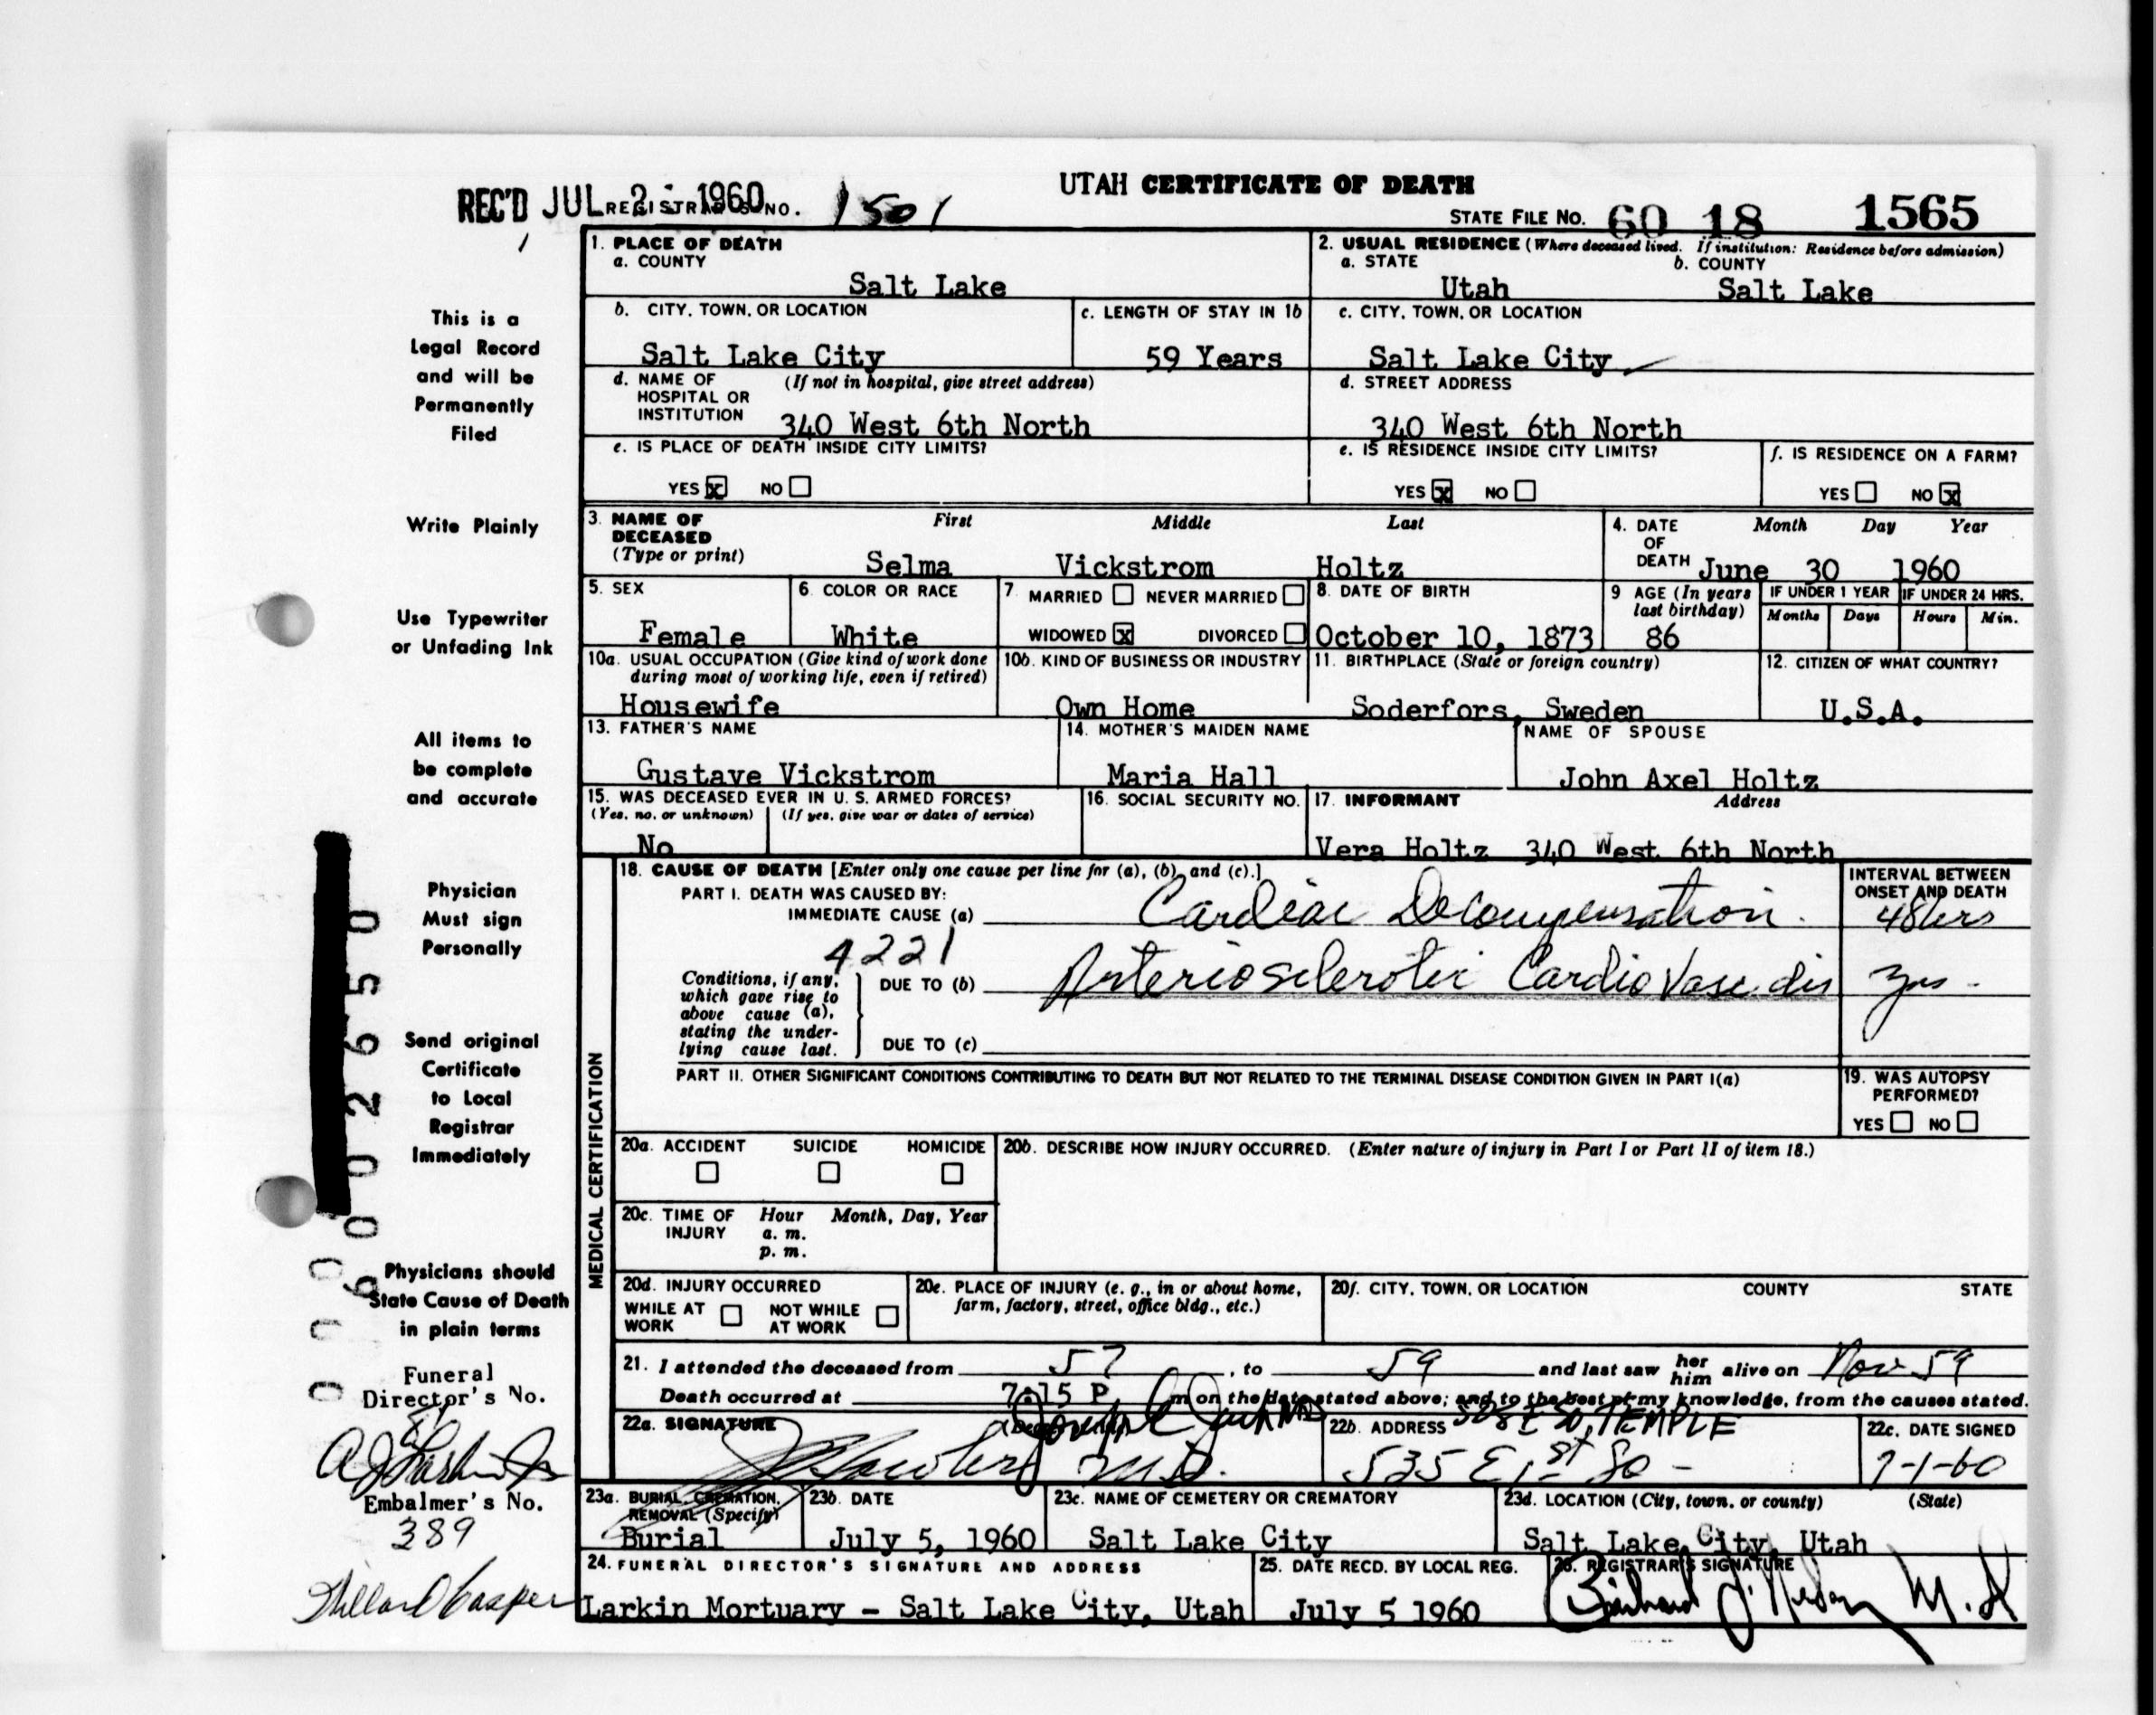 UTAH CERTIFICATE OF DEATH
REC'D JUL 2 - 1960 REGISTRAR'S NO. 1501
STATE FILE NO. 60 18 1565
This is a
Legal Record
and will be
Permanently
Filed
Write Plainly
Use Typewriter
or Unfading Ink
All items to
be complete
and accurate
Physician
Must sign
Personally
Send original
Certificate
to Local
Registrar
Immediately
Physicians should
State Cause of Death
in plain terms
Funeral
Director's No.
Embalmer's No.
389
1. PLACE OF DEATH
a. COUNTY
Salt Lake
2. USUAL RESIDENCE (Where deceased lived. If institution: Residence before admission)
a. STATE b. COUNTY
Utah Salt Lake
b. CITY, TOWN, OR LOCATION
Salt Lake City
c. LENGTH OF STAY IN 1b
59 Years
c. CITY, TOWN, OR LOCATION
Salt Lake City
d. NAME OF (If not in hospital, give street address)
HOSPITAL OR
INSTITUTION 340 West 6th North
d. STREET ADDRESS
340 West 6th North
e. IS PLACE OF DEATH INSIDE CITY LIMITS?
YES X NO
e. IS RESIDENCE INSIDE CITY LIMITS?
YES X NO
f. IS RESIDENCE ON A FARM?
YES NO X
3. NAME OF First Middle Last
DECEASED
(Type or print) Selma Vickstrom Holtz
4. DATE Month Day Year
OF
DEATH June 30 1960
5. SEX
Female
6. COLOR OR RACE
White
7. MARRIED NEVER MARRIED
WIDOWED X DIVORCED
8. DATE OF BIRTH
October 10, 1873
9 AGE (In years
last birthday)
86
IF UNDER 1 YEAR
Months Days
IF UNDER 24 HRS.
Hours Min.
10a. USUAL OCCUPATION (Give kind of work done
during most of working life, even if retired)
Housewife
10b. KIND OF BUSINESS OR INDUSTRY
Own Home
11. BIRTHPLACE (State or foreign country)
Soderfors, Sweden
12. CITIZEN OF WHAT COUNTRY?
U.S.A.
13. FATHER'S NAME
Gustave Vickstrom
14. MOTHER'S MAIDEN NAME
Maria Hall
NAME OF SPOUSE
John Axel Holtz
15. WAS DECEASED EVER IN U. S. ARMED FORCES?
(Yes, no, or unknown) (If yes, give war or dates of service)
No
16. SOCIAL SECURITY NO.
17. INFORMANT Address
Vera Holtz 340 West 6th North
MEDICAL CERTIFICATION
18. CAUSE OF DEATH [Enter only one cause per line for (a), (b), and (c).]
PART I. DEATH WAS CAUSED BY:
IMMEDIATE CAUSE (a) Cardiac Decompensation.
4221
Conditions, if any,
which gave rise to
above cause (a),
stating the under-
lying cause last.
DUE TO (b) Arteriosclerotic Cardio Vasc. dis
DUE TO (c)
INTERVAL BETWEEN
ONSET AND DEATH
48hrs
yrs -
PART II. OTHER SIGNIFICANT CONDITIONS CONTRIBUTING TO DEATH BUT NOT RELATED TO THE TERMINAL DISEASE CONDITION GIVEN IN PART I(a)
19. WAS AUTOPSY
PERFORMED?
YES NO
20a. ACCIDENT SUICIDE HOMICIDE
20b. DESCRIBE HOW INJURY OCCURRED. (Enter nature of injury in Part I or Part II of item 18.)
20c. TIME OF Hour Month, Day, Year
INJURY a. m.
p. m.
20d. INJURY OCCURRED
WHILE AT NOT WHILE
WORK AT WORK
20e. PLACE OF INJURY (e. g., in or about home,
farm, factory, street, office bldg., etc.)
20f. CITY, TOWN, OR LOCATION COUNTY STATE
21. I attended the deceased from 57, to 59 and last saw her him alive on Nov 59
Death occurred at 7:15 P. m on the date stated above; and to the best of my knowledge, from the causes stated.
22a. SIGNATURE
M.D.
22b. ADDRESS 508 E So. TEMPLE
535 E 1st So -
22c. DATE SIGNED
7-1-60
23a. BURIAL, CREMATION,
REMOVAL (Specify)
Burial
23b. DATE
July 5, 1960
23c. NAME OF CEMETERY OR CREMATORY
Salt Lake City
23d. LOCATION (City, town, or county) (State)
Salt Lake City, Utah
24. FUNERAL DIRECTOR'S SIGNATURE AND ADDRESS
Larkin Mortuary - Salt Lake City, Utah
25. DATE RECD. BY LOCAL REG.
July 5 1960
26. REGISTRAR'S SIGNATURE